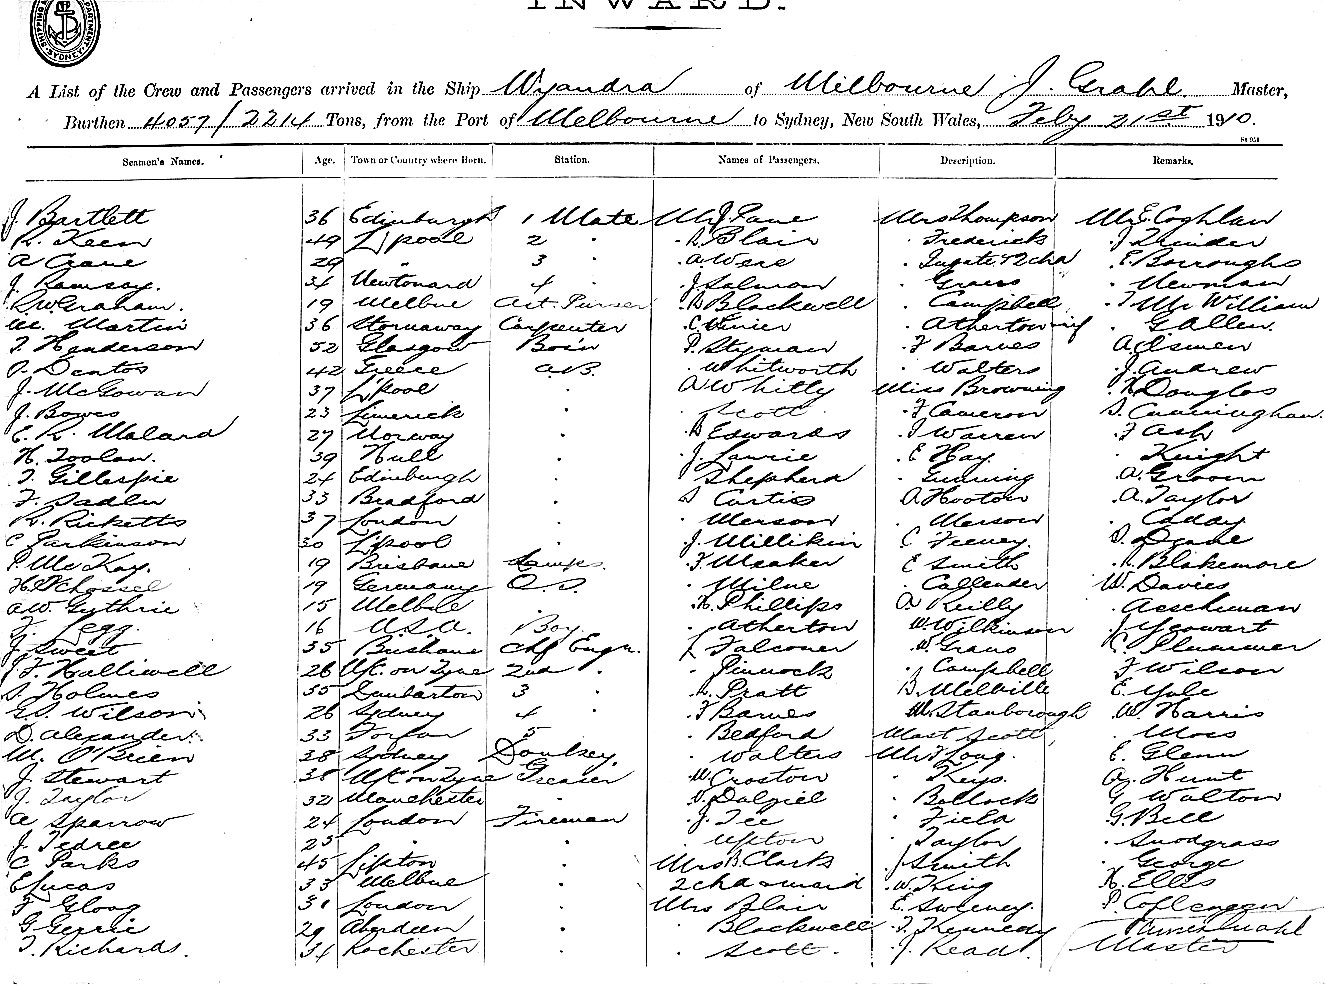 INWARD.
A List of the Crew and Passengers arrived in the Ship Wyandra of Melbourne J. Grahl Master,
Burthen 4057/2214 Tons, from the Port of Melbourne to Sydney, New South Wales, Feby 21st 1910.
Seamen's Names. Age. Town or Country where Born. Station. Names of Passengers. Description. Remarks.
J. Bartlett 36 Edinburgh 1 Mate Mr J. Mrs Thompson Mr E. Coghlan
R. Keen 49 L'pool 2 " Blair " Frederick
A Crane 29 " 3 " A. " & 2 chd " E. Burroughs
J. Ramsay. 34 Newtonard 4 " J. Salmon " " Newman
R. W. Graham. 19 Melbne Act. Purser Blackwell " Campbell " McWilliam
W. Martin 36 Stornaway Carpenter C. " G Allen.
T. Henderson 52 Glasgow Bos'n " F Barnes A.
42 Greece A.B. " Whitworth " Walters " J. Andrew
J. McGowan 37 L'pool " A Whitty Miss Browning " Douglas
J. Bowes 23 Limerick " " Scott " F Cameron S. Cunningham
E. R. Malard 27 Norway " Edwards " J Warren " F Ash
H. Toolan. 39 Hull " J. Lawrie " E Hay " Knight
T. Gillespie 24 Edinburgh " " Shepherd " Gunning " A. Groom
F. Sadler 33 Bradford " S Curtis " A. Hooton " A. Taylor
R. Ricketts 37 London " " Merson " Merson
C Parkinson 30 L'pool " J. Millikin " C Feeney.
P. McKay. 19 Brisbane Lamps. " F Meaker " E Smith Blakemore
19 Germany O.S. " Milne " Callender W. Davies
A.W. Guthrie 15 Melbne " H. Phillips A Reilly " Aeschiman
F. Legg. 16 U.S.A. Boy. " Atherton W. Wilkinson " J. Yeowart
J Sweet 35 Brisbane Chf Engr. " L Falconer W. " Plummer
J. F. Halliwell 26 N/C. on Tyne 2nd " " Pinnock " J Campbell " F Wilson
S. Holmes 35 Dunbarton 3 " Pratt " B. Melville " E. Yule
G.S. Wilson 26 Sydney 4 " " F Barnes " M. Stanborough " W. Harris
D. Alexander 33 5 " Bedford Mast. Scott " Moss
M. O'Brien 38 Sydney Donkey. " Walters Mr F Long. " E. Glenn
J. Stewart 38 N/C on Tyne Greaser " W. Croston " Keys. " A. Hunt
J. Taylor 32 Manchester " " D. Dalziel " Bullock " G Walton
A Sparrow 24 London Fireman " J. Tee " Field " G. Bell
J. Tedree 25 " " " Upton " Taylor " Snodgrass
C Parks 45 Lipton " Mrs B. Clark " J Smith " George
E Lucas 33 Melbne " 2 chd & maid " W. King " H. Ellis
31 London " Mrs Blair " E. Sweeney
29 Aberdeen " " Blackwell " T. Kennedy James Grahl
T. Richards. 34 Rochester " " Scott " J. Read. Master